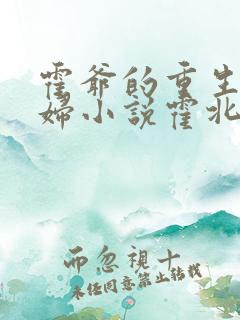 霍爷的重生
妇小说霍北
而忽視十
未经同意禁止转载